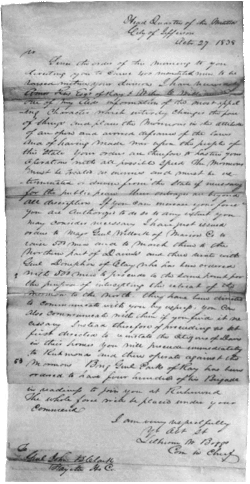 Head Quarters of the Militia
City of Jefferson
Octr 27 1838
Sir
Since the order of the morning to you
directing you to cause four hundred mounted men to be
raised within your division I have received by
Amos Rees Esqr of Ray &
one of my aids information of the most appal-
ling character which entirely changes the face
of things and places the Mormons in the attitude
of an open and armed defiance of the laws
and of having made war upon the people of
this State. Your orders are therefore to hasten your
operations with all possible speed. The Mormons
must be treated as enemies and must be ex-
terminated or driven from the State if necessary
for the public peace. Their outrages are beyond
all description. If you can increase your force
you are authorized to do so to any extent you
may consider necessary. I have just issued
orders to Majr Genl Willock of Marion Co to
raise 500 men and to march them to the
Northern part of Daviess and there unite with
Genl Doniphan of Clay who has been ordered
with 500 men to proceed to the same point for the
purpose of intercepting the retreat of the
Mormons to the North. They have been directed
to communicate with you by express. You can
also communicate with them if you find it ne-
cessary. Instead therefore of proceeding as at
first directed to reinstate the citizens of Daviess
in their homes you will proceed immediately
to Richmond and there operate against the
Mormons. Brig Genl Parks of Ray has been
ordered to have four hundred of his Brigade
in readiness to join you at Richmond.
The whole force will be placed under your
Command
I am very respectfully
Yr obt St
Lilburn W Boggs
Com in Chief
To
Genl John B Clark
Fayette Ho Co